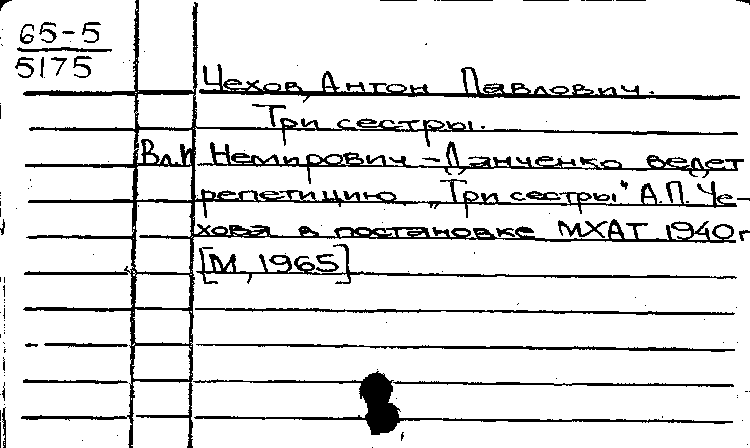 65-5
5175
Чехов, Антон Павлович.
Три сестры.
Вл.И Немирович-Данченко ведет
репетицию „Три сестры" А.П. Че-
хова в постановке МХАТ 1940г
[М, 1965]